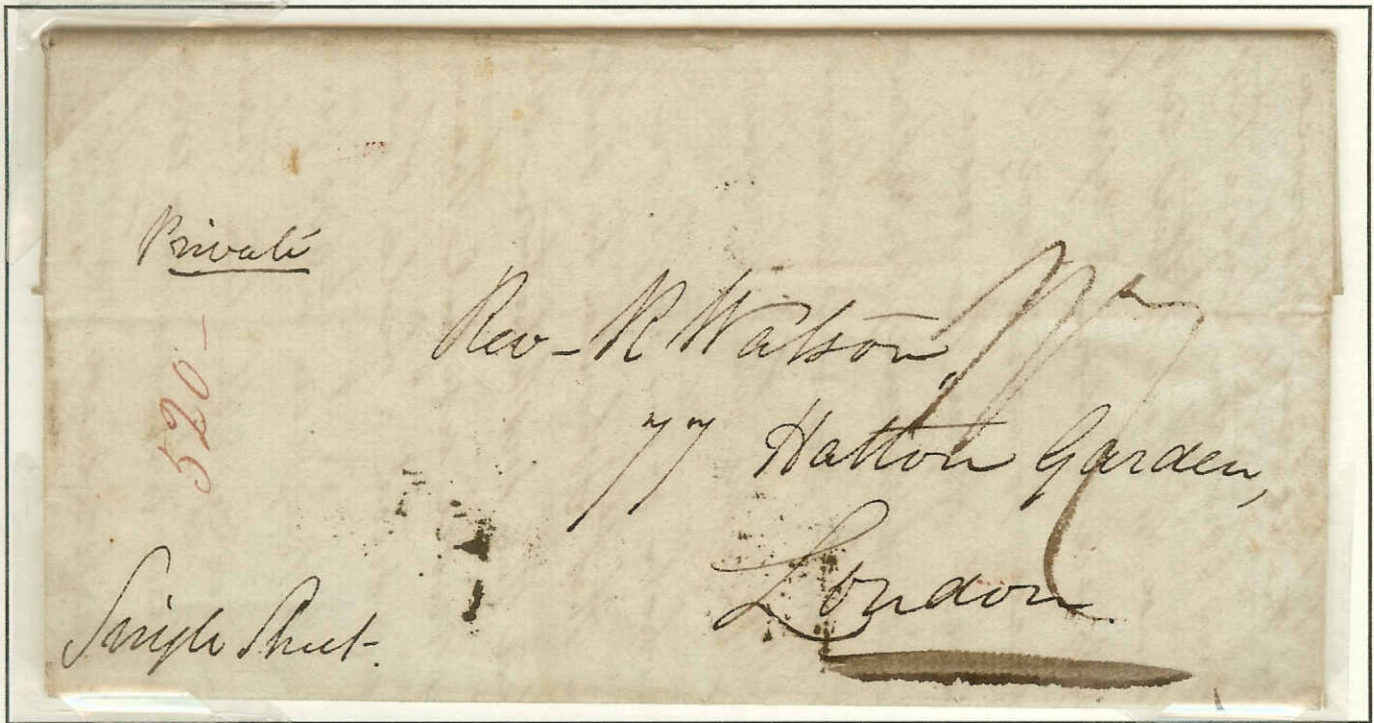 Private
520-
Rev - R Watson,
77 Hatton Garden,
London
Single Sheet-